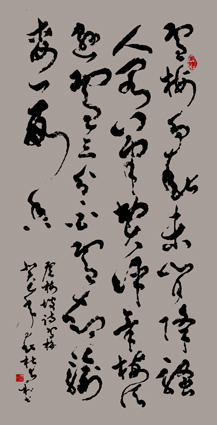 雪梅争春未肯降骚
人阁笔费评章梅须
逊雪三分白雪却输
梅一段香
卢梅坡诗雪梅
癸巳年